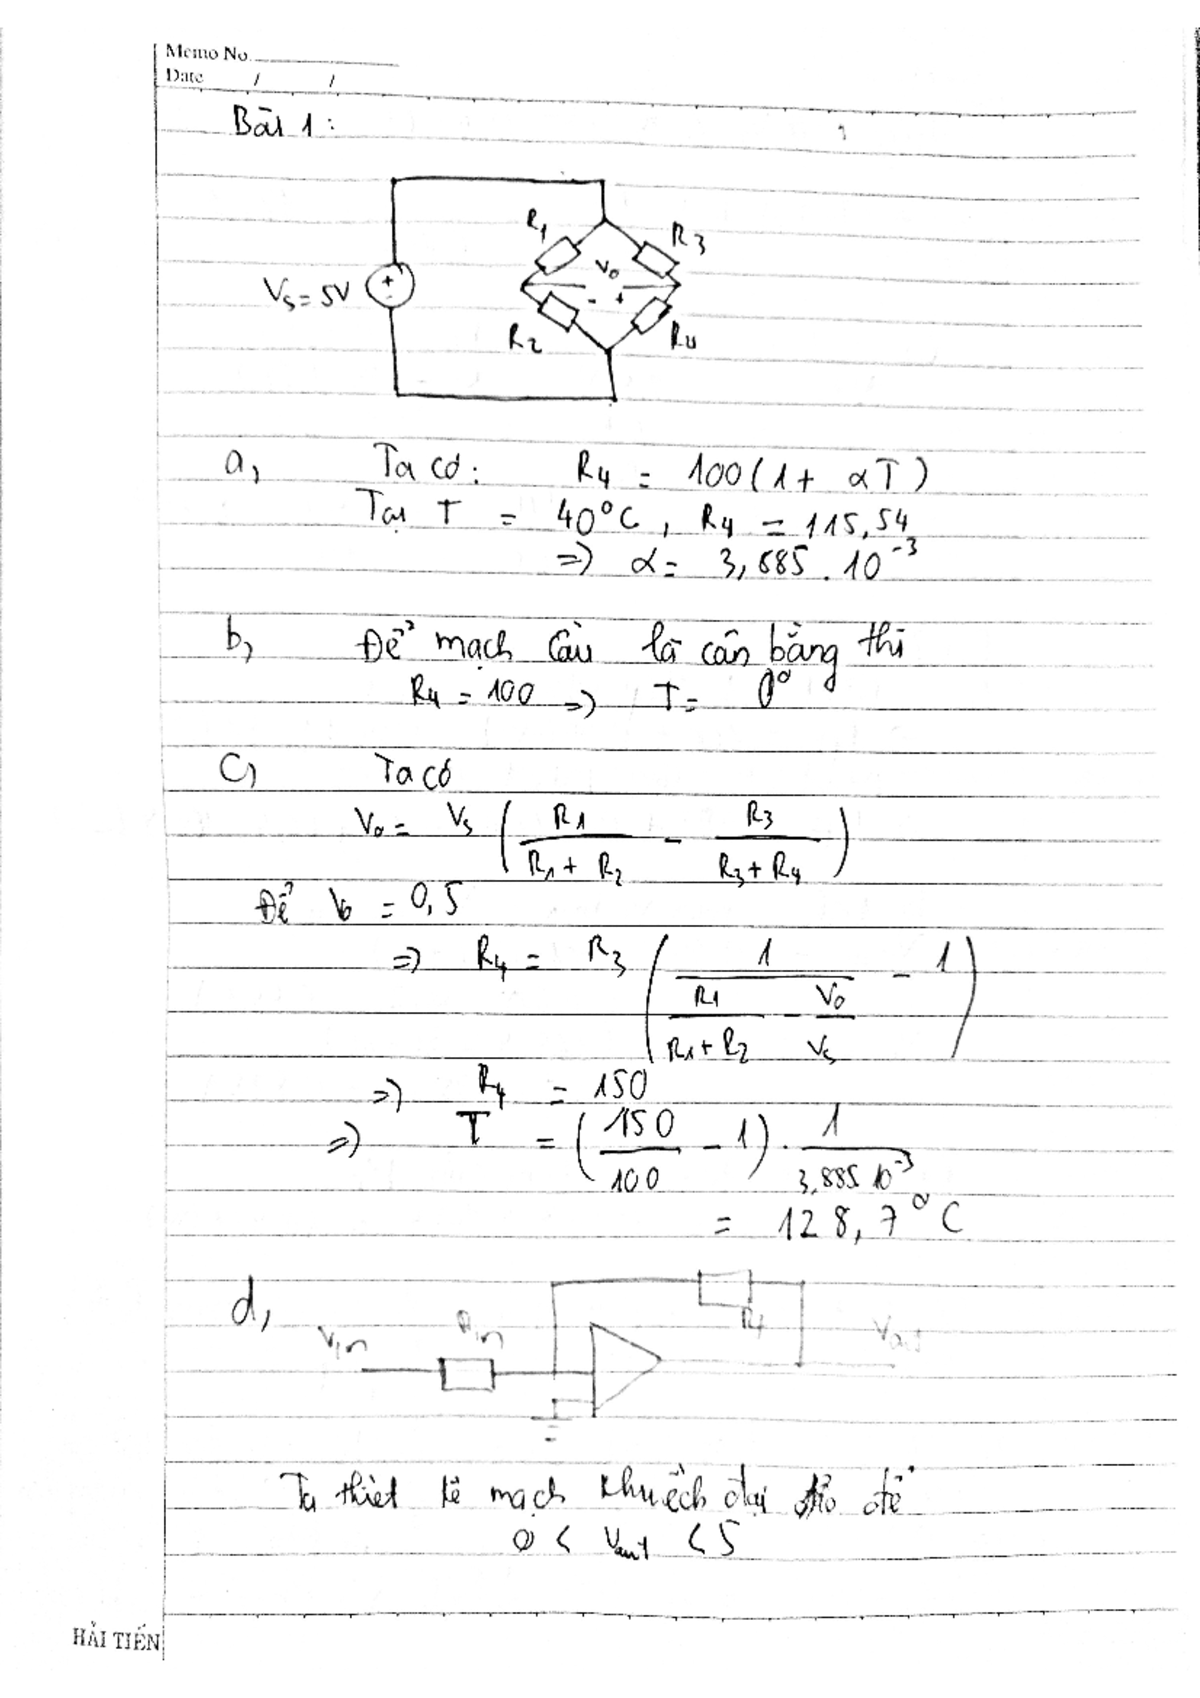 Memo No.
Date / /
Bài 1:
R1
R3
Vo
Vs = 5V
- +
R2
R4
a, Ta có: R4 = 100(1 + αT)
Tại T = 40°C, R4 = 115,54
=> α = 3,885 . 10^-3
b, Để mạch cầu là cân bằng thì
R4 = 100 => T = 0°
c, Ta có
Vo = Vs ( R1 / (R1 + R2) - R3 / (R3 + R4) )
Để Vo = 0,5
=> R4 = R3 ( 1 / ( R1 / (R1 + R2) - Vo / Vs ) - 1 )
=> R4 = 150
=> T = ( 150 / 100 - 1 ) . 1 / 3,885 10^-3
= 128,7°C
d,
Rf
Vin Rin Vout
Ta thiết kế mạch khuếch đại đảo để
0 < Vout < 5
HẢI TIẾN